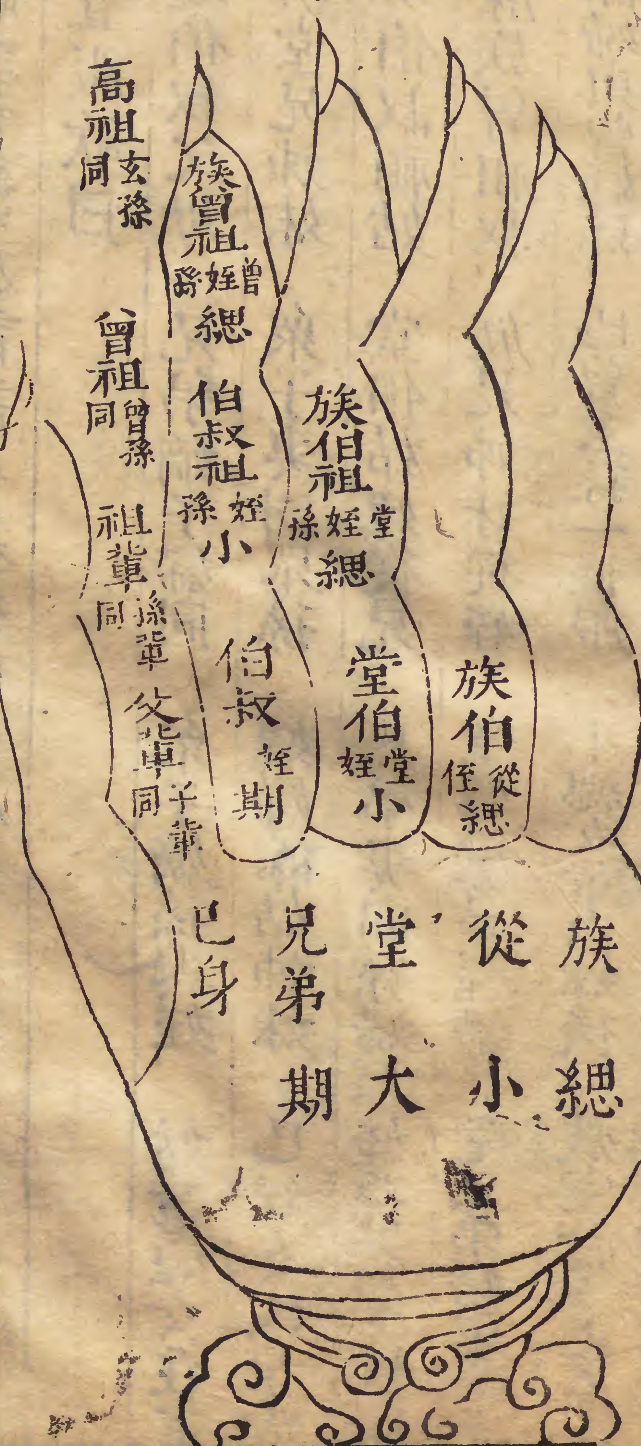 高祖
玄孫
同
曾祖
曾孫
同
祖輩
孫輩
同
父輩
子輩
同
族曾祖
曾姪孫
緦
伯叔祖
姪孫
小
伯叔
姪
期
族伯祖
堂姪孫
緦
堂伯
堂姪
小
族伯
從侄
緦
巳身
兄弟
期
堂
大
從
小
族
緦